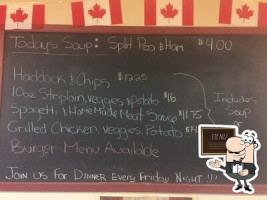 Today's Soup: Split Pea & Ham $4.00
Haddock & Chips
10oz Striploin, veggies, potato $16
Spaghetti & Home Made Meat Sauce $11.75
Grilled Chicken, veggies, Potato
Burger Menu Available
Includes
Soup
MENU
Join us For Dinner Every Friday Night!!!